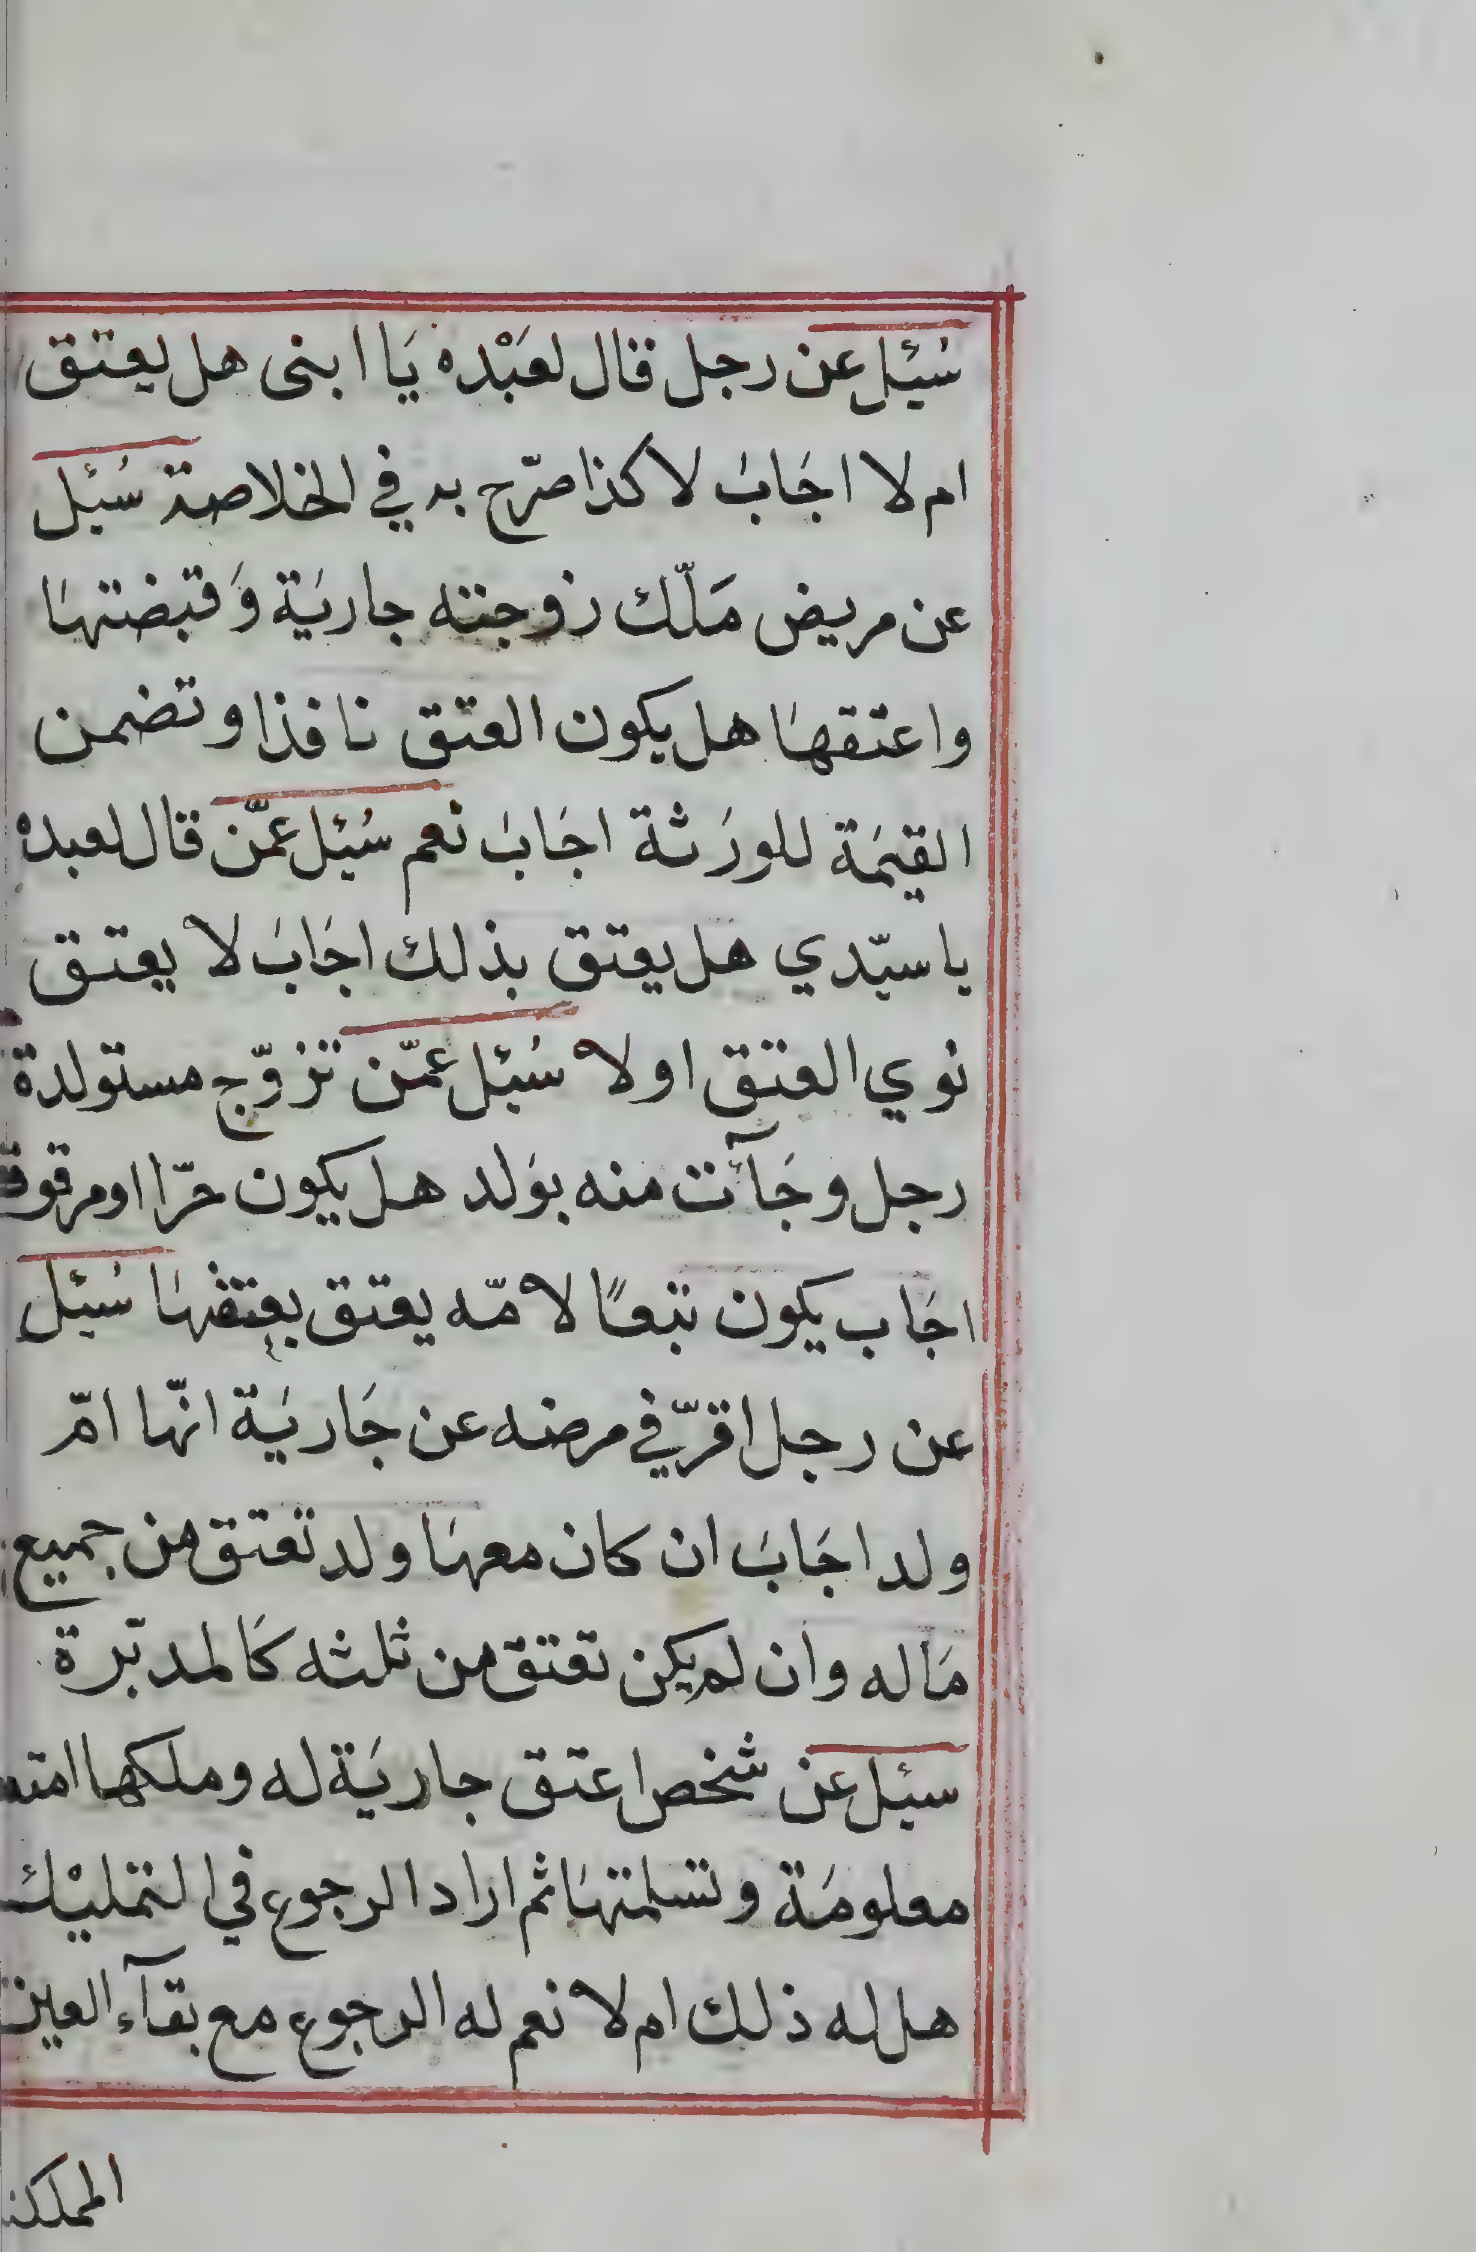 سُئِل عن رجل قال لعَبْده يَا ابنى هل يعتق
ام لا اجَابَ لا كذا صرّح به في الخلاصة سُئِل
عن مريض مَلّك زوجته جاريَة وَقبضتهَا
واعتقهَا هل يكون العتق نافذا وتضمن
القيمَة للورَثة اجَابَ نعم سُئِل عمّن قال لعبدهْ
يا سيّدي هل يعتق بذلك اجَابَ لا يعتق
نوي العتق اولا سُئِل عمّن تزوّج مستولدة
رجل وجَآئت منه بوَلد هل يكون حرّا او مرقوقا
اجَاب يكون تبعًا لامّه يعتق بعتقهَا سُئِل
عن رجل اقرّ في مرضه عن جَاريَة انّها امّ
ولد اجَابَ ان كان معهَا ولد تعتق من جميع
مَاله وان لم يكن تعتق من ثلثه كَالمدبّرة
سئِل عن شخص اعتق جاريَة له وملكها امتعة
معلومَة وتسلمتهَا ثم اراد الرجوع في التمليْك
هل له ذلك ام لا نعم له الرجوع مع بقآء العين